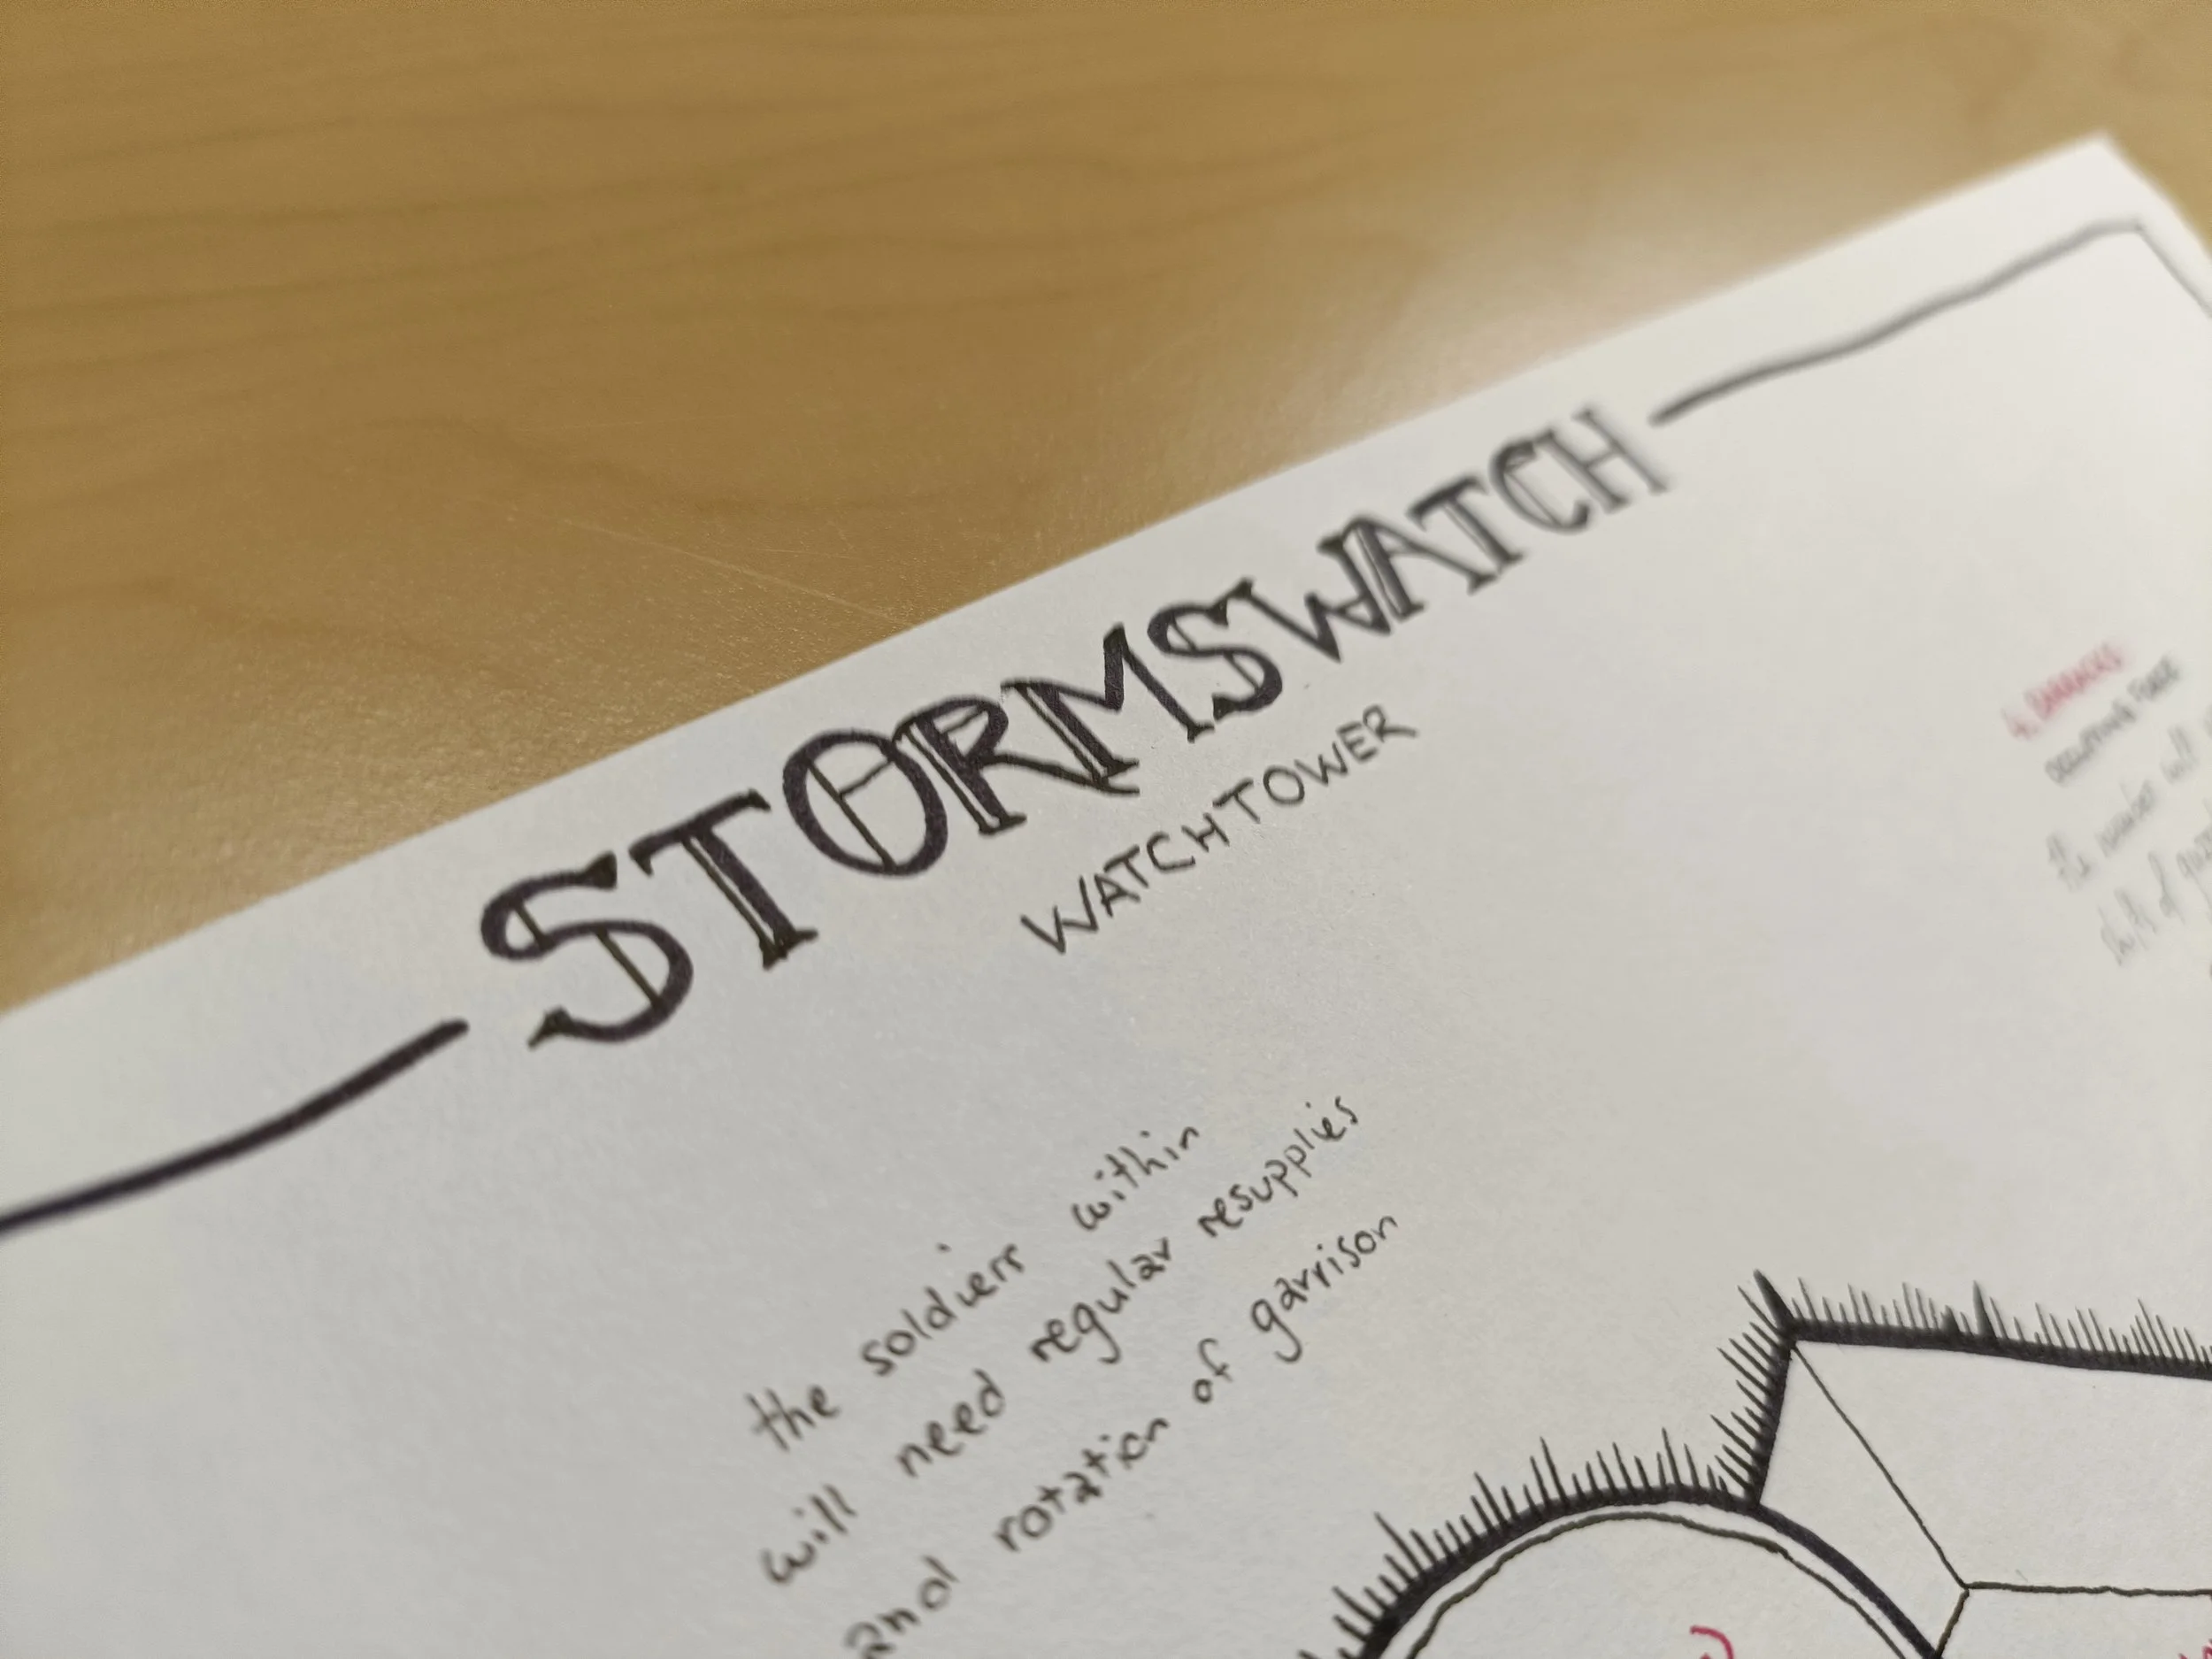 STORMSWATCH
WATCHTOWER
the soldiers within
will need regular resupplies
and rotation of garrison
4. BARRACKS
the number will
shift of